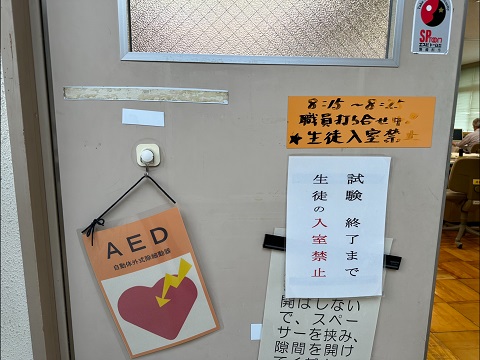 SPトーン
8:15〜8:25
職員打ち合せ中
★生徒入室禁止
試験 終了まで
生徒の入室禁止
AED
自動体外式除細動器
開はしない
で、スペー
サーを挟み、
隙間を開け